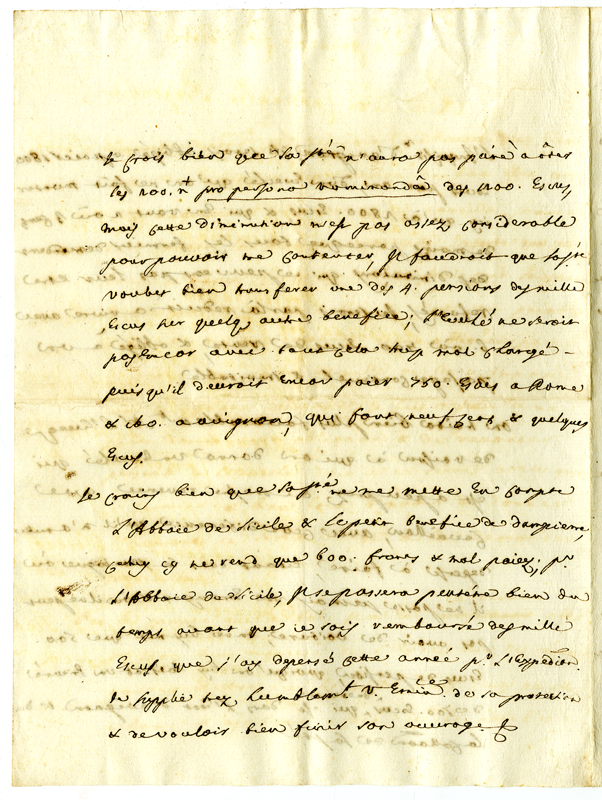 Je crois bien que sa s.té n'aura pas peine a ôter
les 1100. tt pro persona nominandâ des 1100. Escus,
mais cette diminution n'est pas assez considerable
pour pouvoir me contenter, Il faudroit que sa s.té
voulut bien transferer une des 4. pensions de mille
Escus sur quelq autre benefice; L'Eveché ne seroit
pas Encor avec tout cela trop mal chargé -
puis qu'il devroit Encor paier 750. Escus a Rome
& 160. a avignon, qui font neuf sens & quelques
Escus.
Je crains bien que sa s.té ne me mette En compte
L'Abbaie de Sicile & Le petit benefice de dampierre,
celuy cy ne rend que 600. francs & mal paiez; p.r
L'Abbaie de Sicile, Il se passera peutetre bien du
temps avant que ie sois remboursé des mille
Escus que j'ay depensé cette année p.r L'Expedition.
Je supplie tres humblem.t v. Em.ce de sa protection
& de vouloir bien finir son ouvrage.